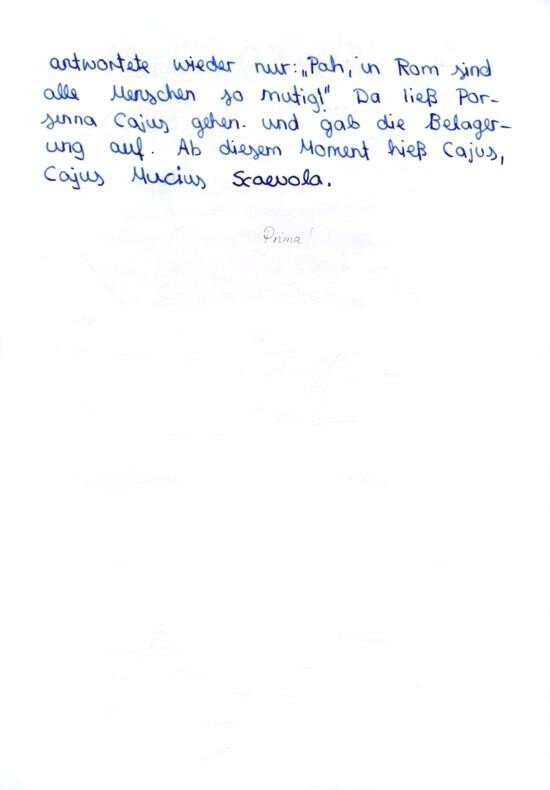 antwortete wieder nur: „Pah, in Rom sind
alle Menschen so mutig!" Da ließ Por-
senna Cajus gehen. und gab die Belager-
ung auf. Ab diesem Moment hieß Cajus,
Cajus Mucius Scaevola.
Prima!